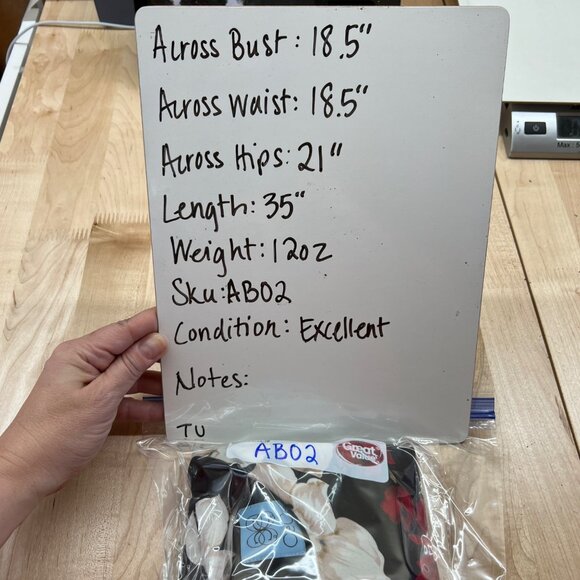 Across Bust: 18.5"
Across Waist: 18.5"
Across Hips: 21"
Length: 35"
Weight: 12oz
Sku: AB02
Condition: Excellent
Notes:
TU
AB02
Great Value